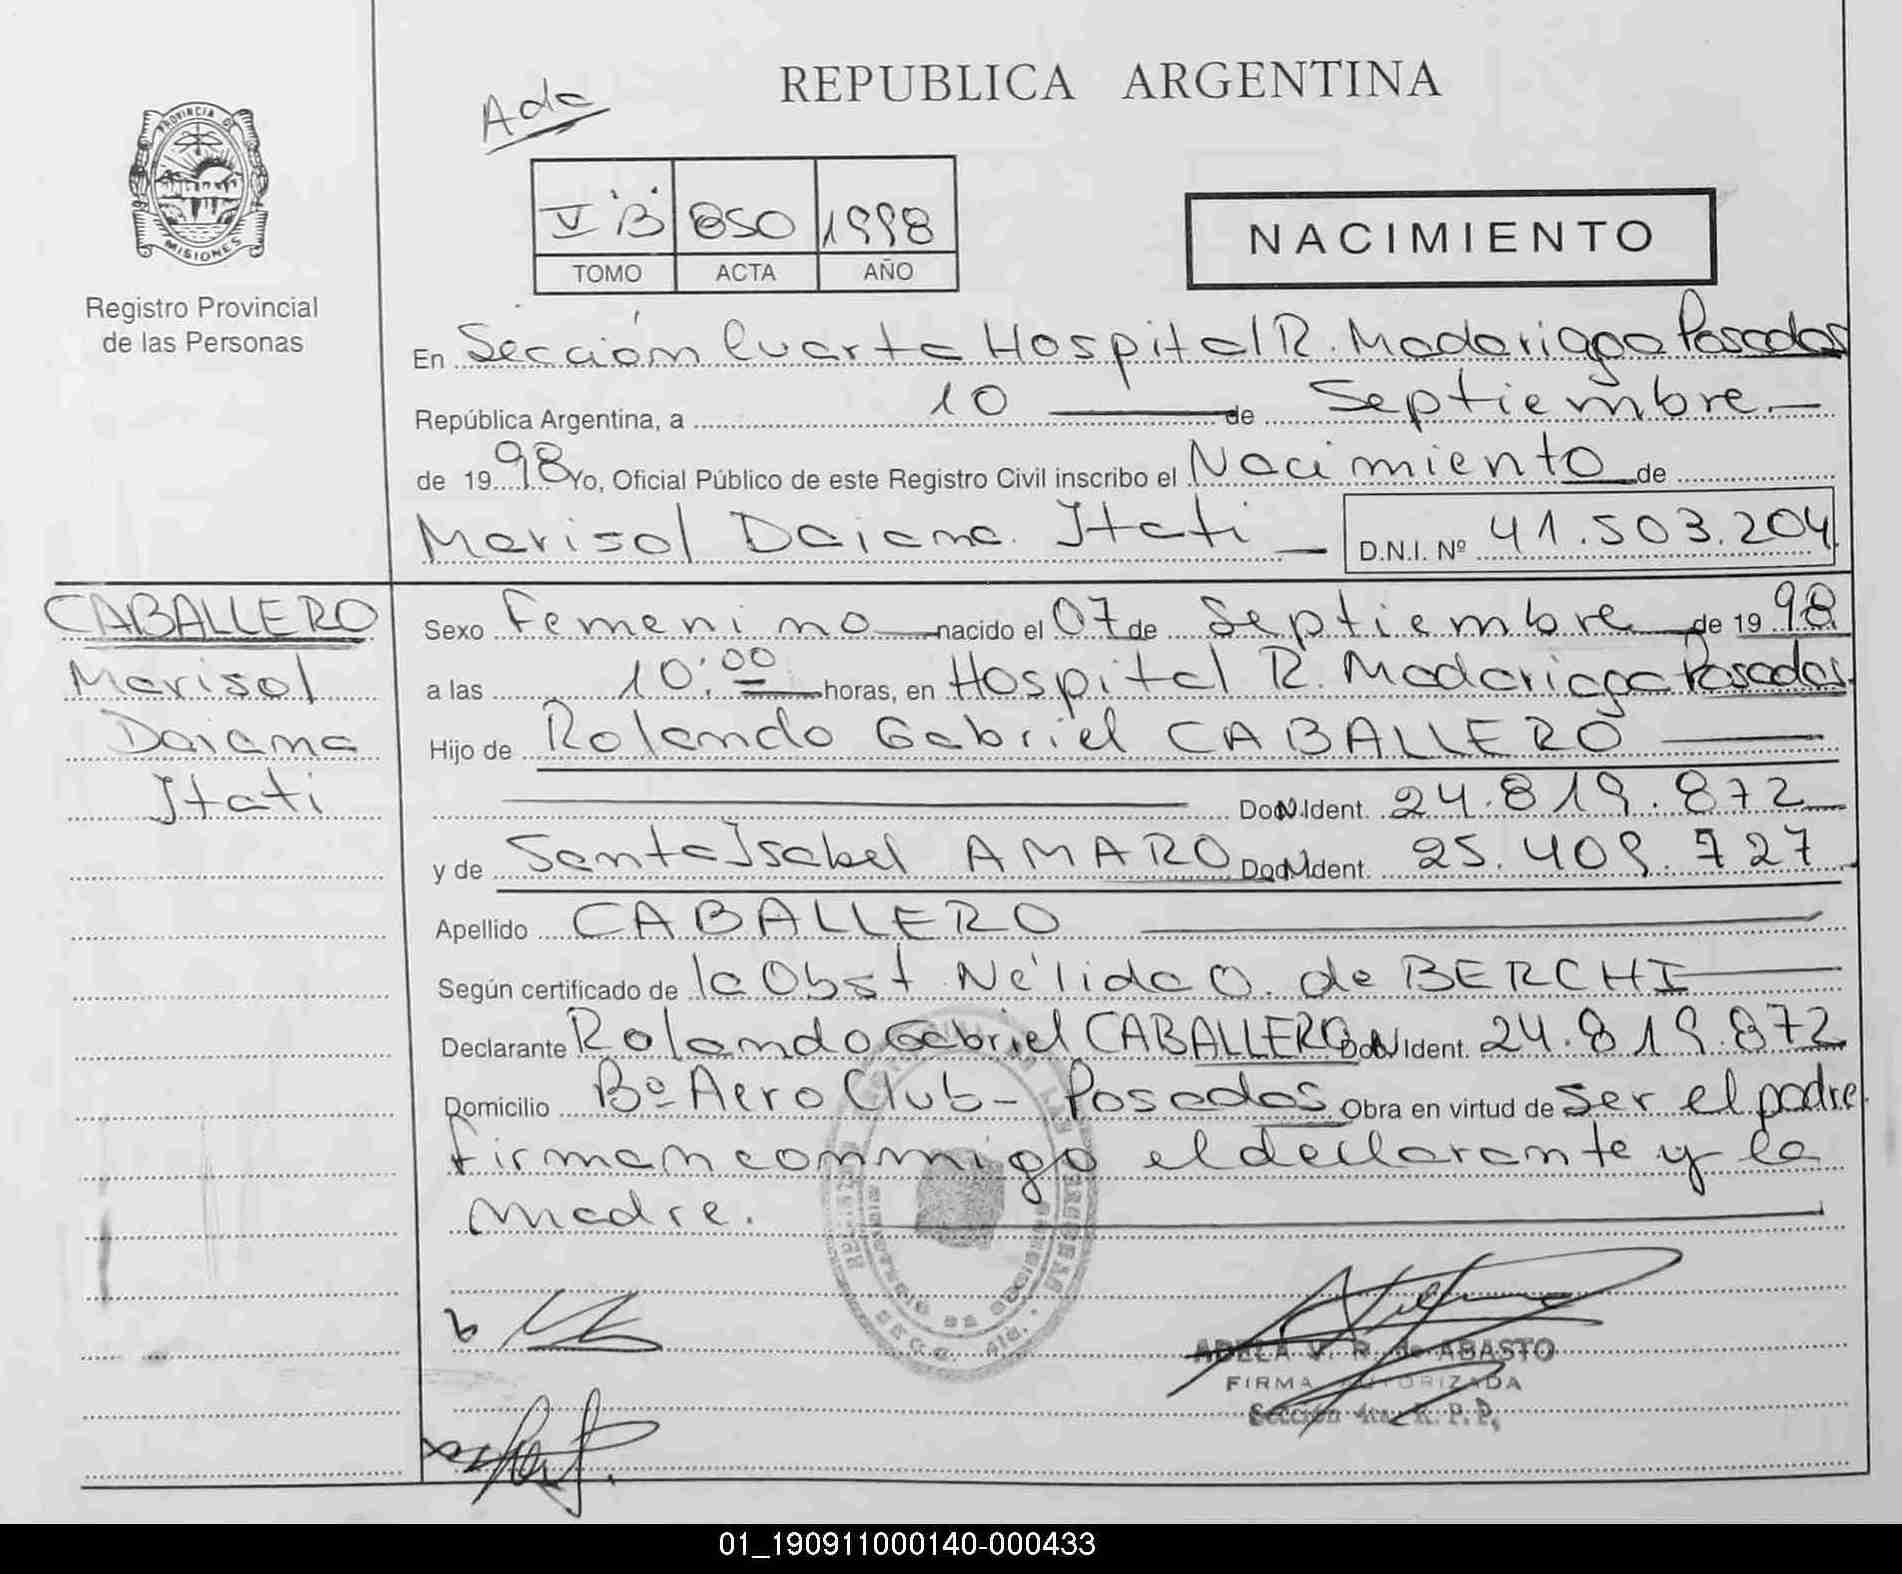 REPUBLICA ARGENTINA
Ada
PROVINCIA DE
MISIONES
Registro Provincial
de las Personas
V "B" 850 1998
TOMO ACTA AÑO
NACIMIENTO
En Sección Cuarta Hospital R. Madariaga Posadas
República Argentina, a 10 de Septiembre
de 1998 Yo, Oficial Público de este Registro Civil inscribo el Nacimiento de
Marisol Daiana Itati D.N.I. Nº 41.503.204
CABALLERO
Marisol
Daiana
Itati
Sexo Femenino nacido el 07 de Septiembre de 1998
a las 10:00 horas, en Hospital R. Madariaga Posadas
Hijo de Rolando Gabriel CABALLERO
Ident. 24.819.872
y de Santa Isabel AMARO Ident. 25.409.727
Apellido CABALLERO
Según certificado de la Obst Nélida O. de BERCHI
Declarante Rolando Gabriel CABALLERO Ident. 24.819.872
Domicilio Bº Aero Club - Posadas Obra en virtud de ser el padre
firman conmigo el declarante y la
madre.
ADELA V. R. de ABASTO
FIRMA AUTORIZADA
Sección 4ta. R. P. P.
01_190911000140-000433